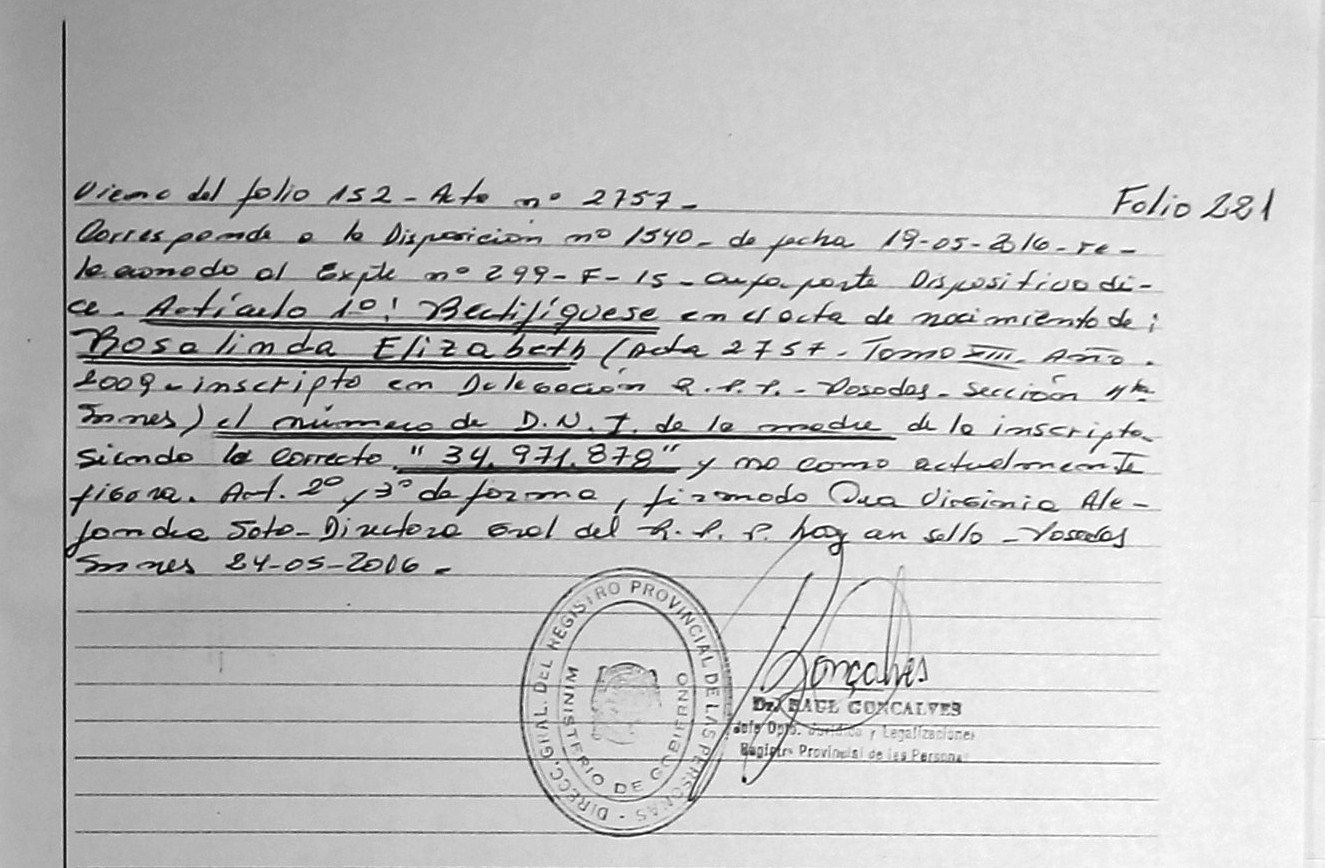 Folio 221
Viene del folio 152 - Acta nº 2757 -
Corresponde a la Disposición nº 1540 - de fecha 19-05-2016 - re-
lacionado al Expte nº 299-F-15 - cuya parte Dispositiva di-
ce. Artículo 1º: Rectifíquese en el acta de nacimiento de:
Rosalinda Elizabeth (Acta 2757 - Tomo XIII. Año.
2009 - inscripta en Delegación R.P.P. - Posadas - Sección
) el número de D.N.I. de la madre de la inscripta.
siendo lo correcto "34.971.878" y no como actualmente
figura. Art. 2º y 3º de forma, firmado Dra Virginia Ale-
jandra Soto - Directora Gral del R.P.P. hay un sello - Posadas
Mnes 24-05-2016 -
DIRECC. GRAL. DEL REGISTRO PROVINCIAL DE LAS PERSONAS -
MINISTERIO DE GOBIERNO
Gonçalves
Dr. RAUL GONCALVES
Jefe Dpto. Jurídico y Legalizaciones
Registro Provincial de las Personas